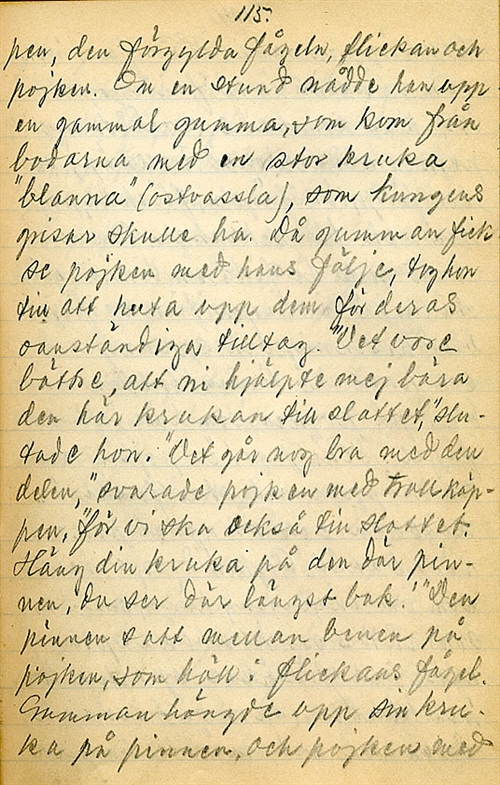 115.
pen, den förgylda fågeln, flickan och
pojken. Om en stund nådde han upp
en gammal gumma, som kom från
bodarna med en stor kruka
"blanna" (ostvassla), som kungens
grisar skulle ha. Då gumman fick
se pojken med hans följe, tog hon
till att huta upp dem för deras
oanständiga tilltag. "Det vore
bättre, att ni hjälpte mej bära
den här krukan till slottet," slu-
tade hon. "Det går nog bra med den
delen," svarade pojken med trollkäp-
pen, "för vi ska också till slottet.
Häng din kruka på den där pin-
nen, du ser där längst bak." Den
pinnen satt mellan benen på
pojken, som höll i flickans fågel.
Gumman hängde upp sin kru-
ka på pinnen, och pojken med